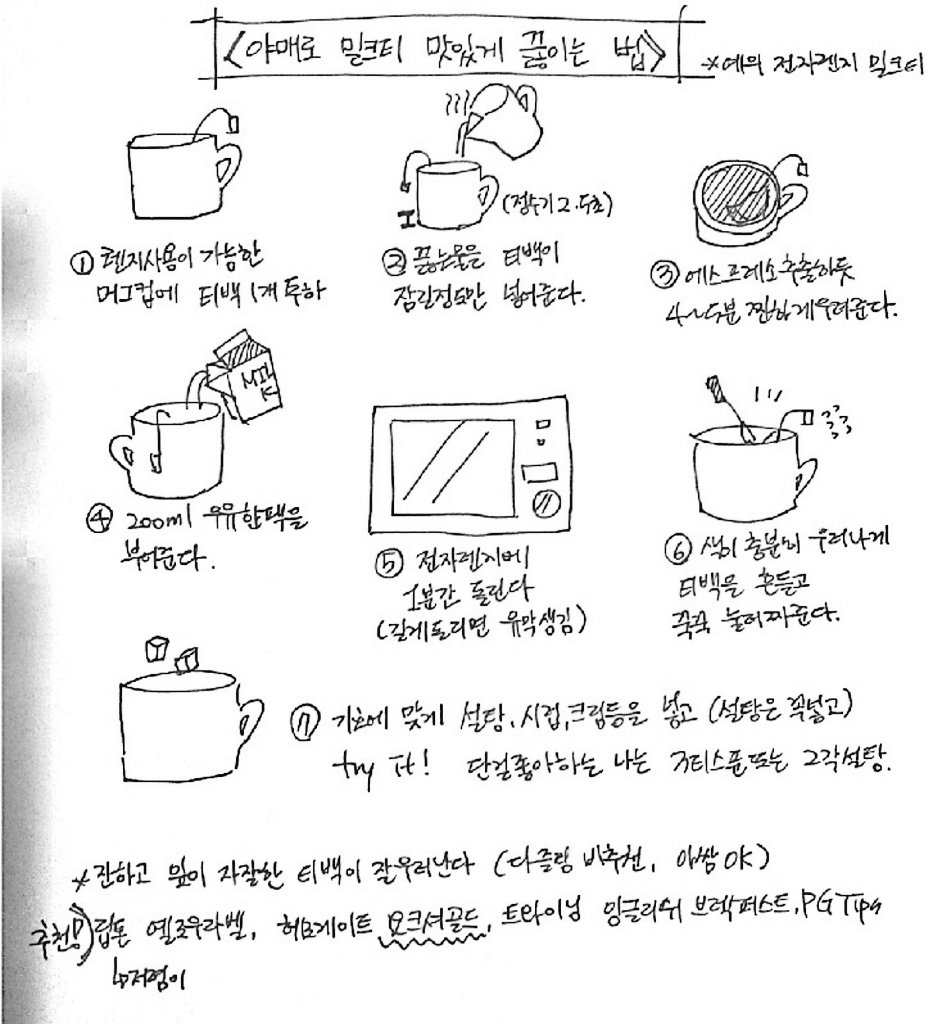 <야매로 밀크티 맛있게 끓이는 법>
*예의 전자렌지 밀크티
① 렌지사용이 가능한
머그컵에 티백 1개 투하
(정수기 2.5초)
② 끓는물을 티백이
잠길정도만 넣어준다.
③ 에스프레소추출하듯
4~5분 찐하게우려준다.
MIL
K
④ 200ml 우유한팩을
부어준다.
⑤ 전자렌지에
1분간 돌린다
(길게돌리면 유막생김)
⑥ 색이 충분히 우러나게
티백을 흔들고
꾹꾹 눌러짜준다.
⑦ 기호에 맞게 설탕, 시럽, 크림등을 넣고 (설탕은 꼭넣고)
try it! 단걸좋아하는 나는 3티스푼또는 2각설탕.
*진하고 잎이 자잘한 티백이 잘우러난다 (다즐링 비추천, 아쌈 OK)
추천!) 립톤 옐로우라벨, 해로게이트 요크셔골드, 트와이닝 잉글리쉬 브렉퍼스트, PG Tips
↳저렴이